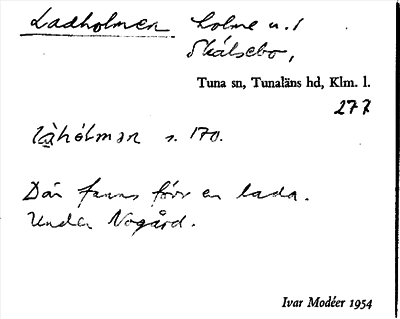 Ladholmen holme n.f
Skälsebo,
Tuna sn, Tunaläns hd, Klm. l.
277
s. 170.
Där fanns förr en lada.
Under Nogård.
Ivar Modéer 1954